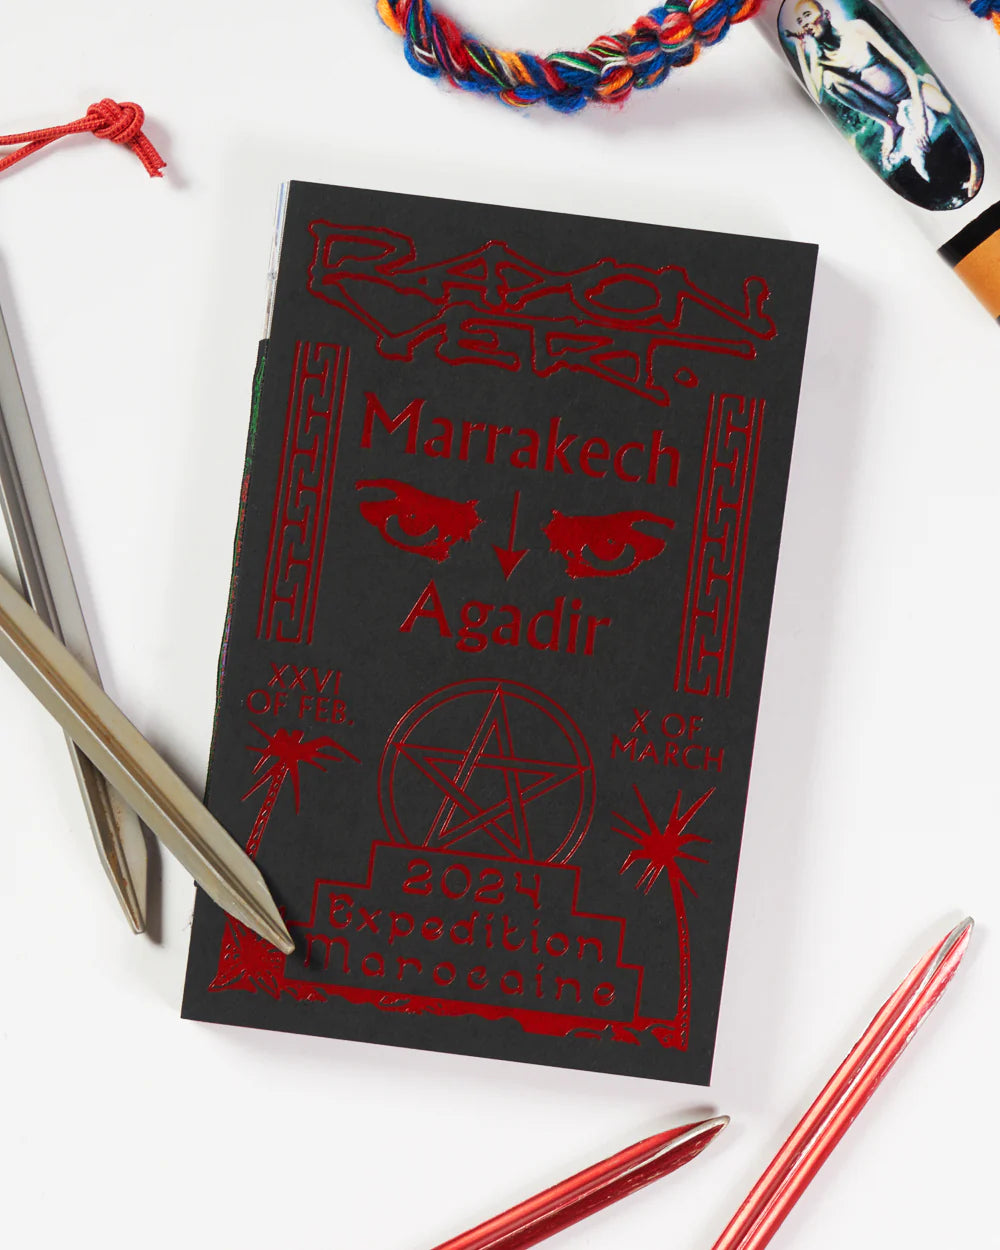 RAYON
VERT.
Marrakech
Agadir
XXVI
OF FEB.
X OF
MARCH
2024
Expedition
Marocaine